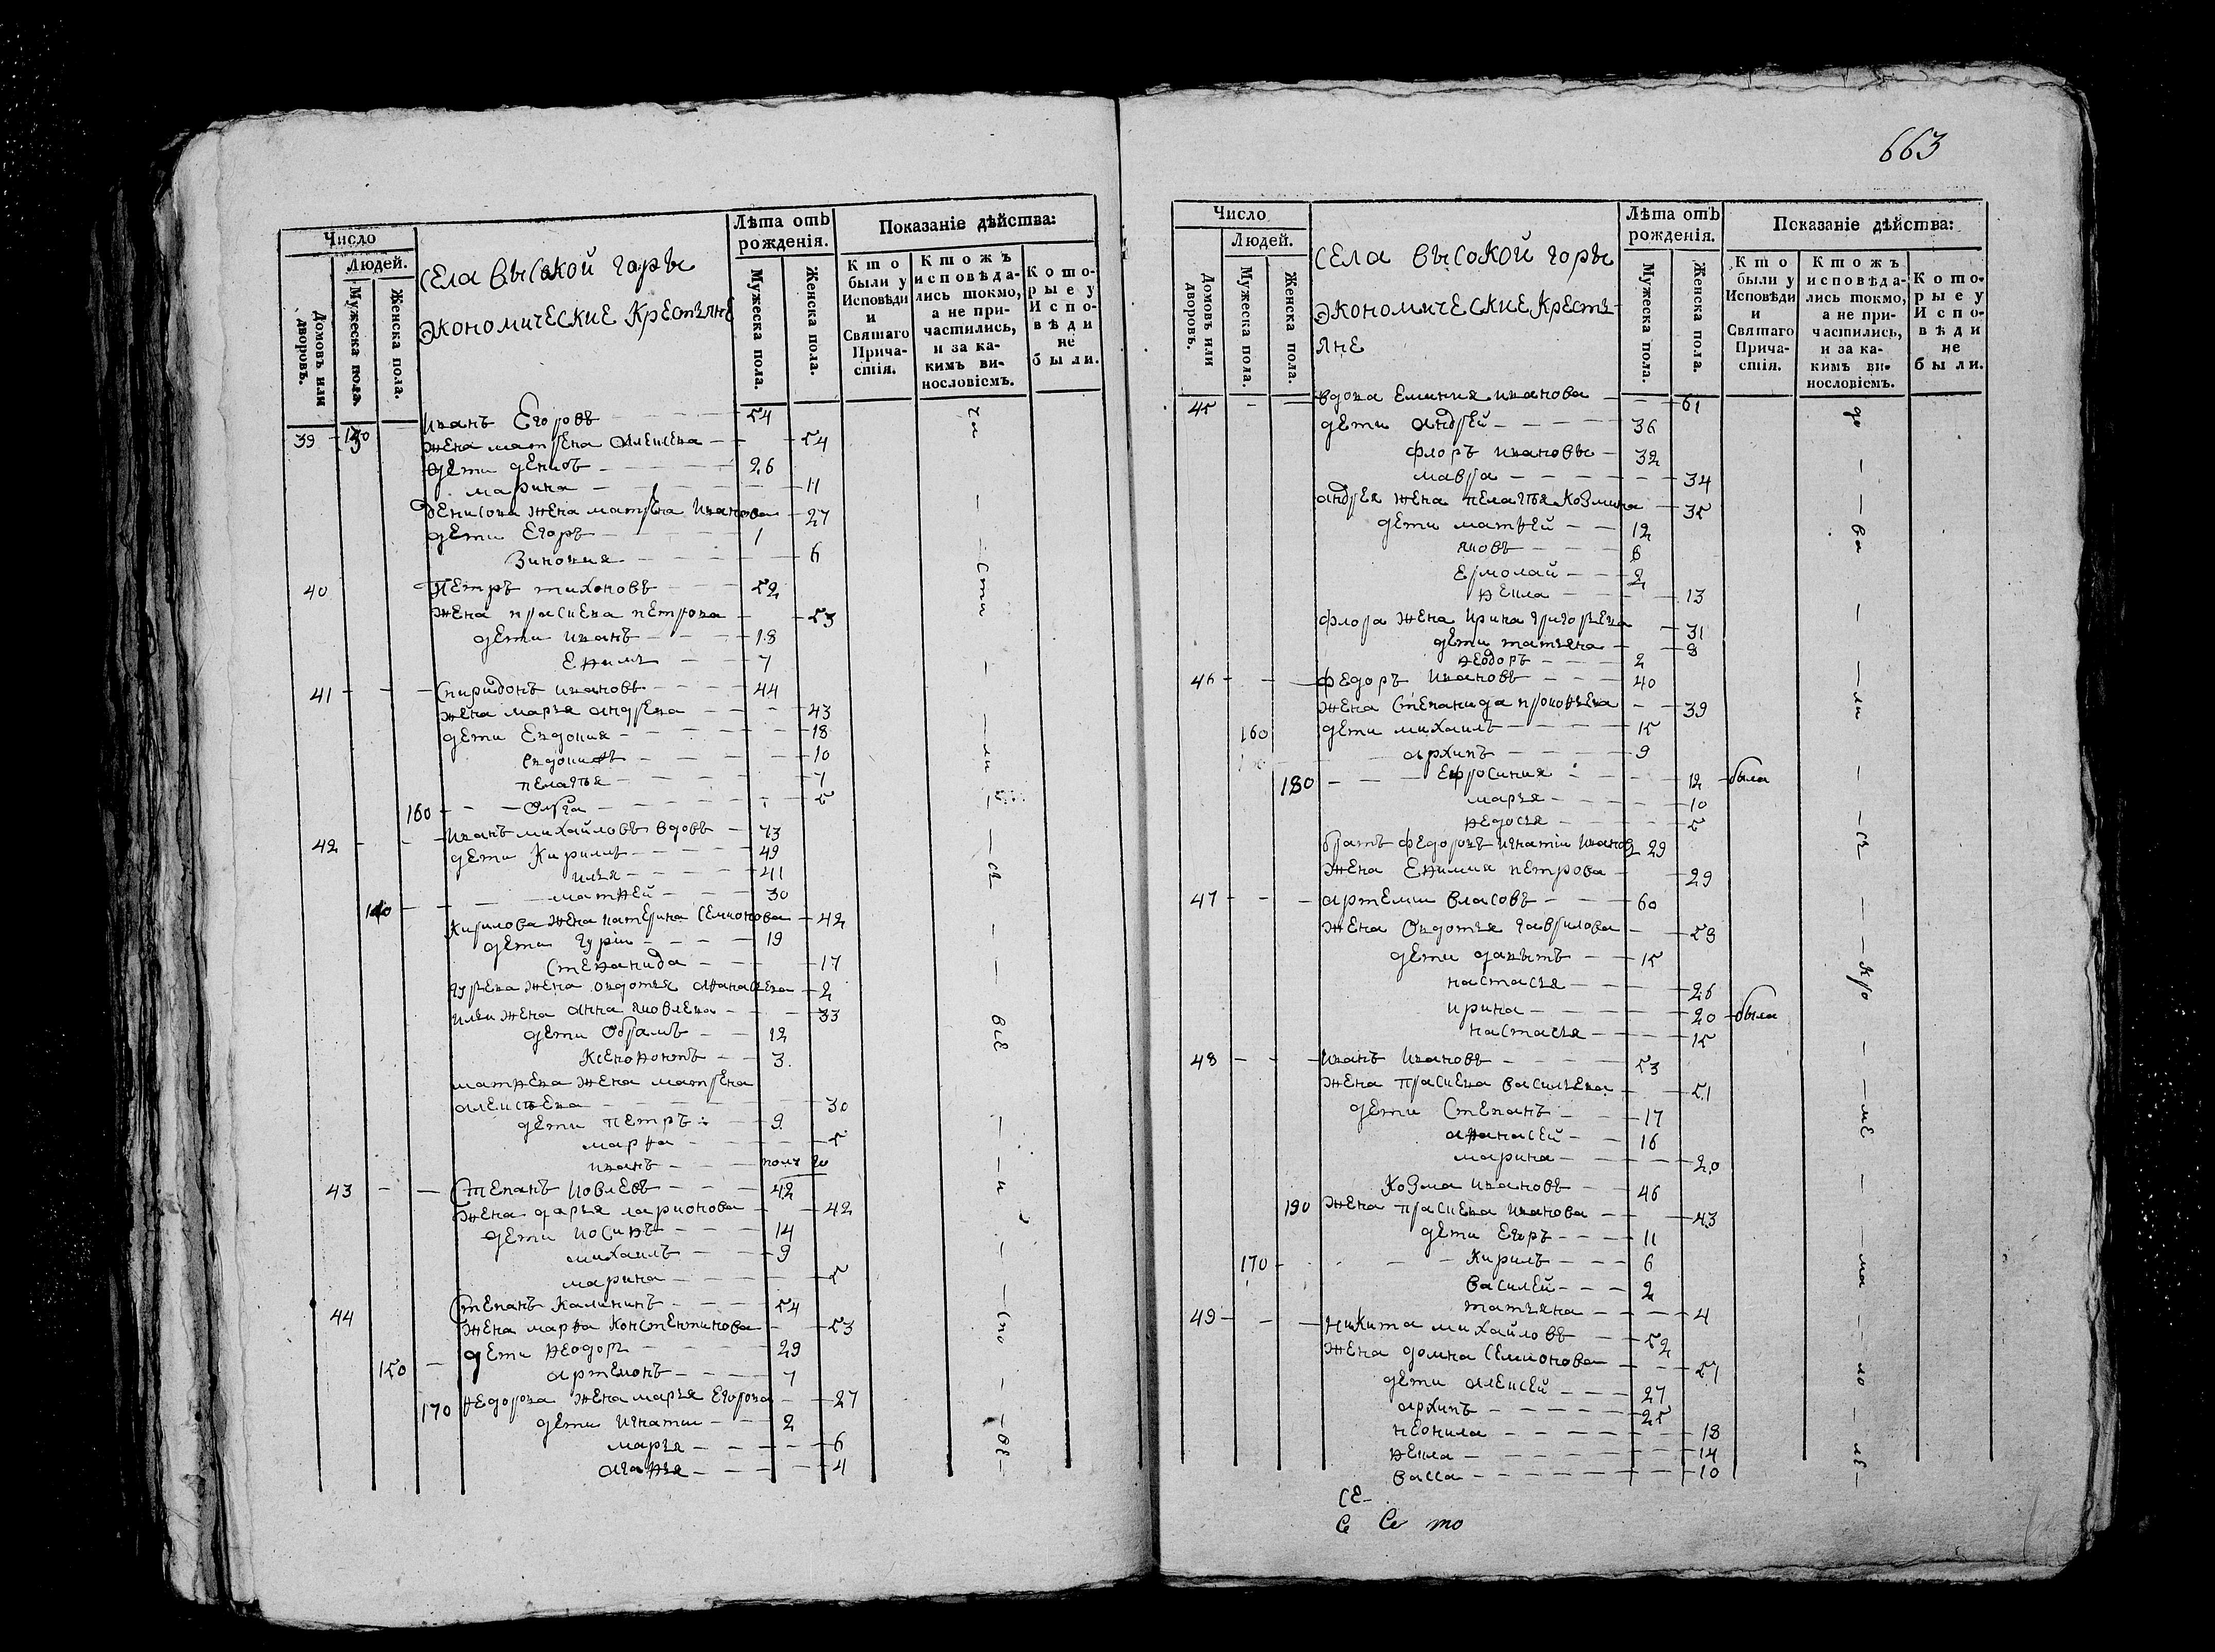 663
Число
Людей.
Домовъ или дворовъ.
Мужеска пола.
Женска пола.
села высокой горы
экономические крестьяне
Лѣта отъ рожденія.
Мужеска пола.
Женска пола.
Показаніе дѣйства:
Кто были у Исповѣди и Святаго Причастія.
Ктожъ исповѣдались токмо, а не причастились, и за какимъ винословіемъ.
Которые у Исповѣди не были.
39 130 иванъ Егоровъ 54
жена матрена алексеева 54
дети денисъ 26
марина 11
денисова жена матрена иванова 27
дети Егоръ 1
Зиновия 6
40 Петръ тихоновъ 52
жена прасковя петрова 53
дети иванъ 18
Еѳимъ 7
41 Спиридонъ ивановъ 44
жена марья андреева 43
дети Евдокия 18
10
пелагъя 7
160 Олга 5
42 иванъ михайловъ вдовъ 73
дети Кирилъ 49
илья 41
матѳей 30
140 Кирилова жена катерина семионова 42
дети гурiи 19
степанида 17
гурьева жена авдотья аѳанасьева 2
ильи жена анна яковлева 33
дети Обрамъ 12
Ксенофонтъ 3
матѳеева жена матрена
алексеева 30
дети петръ 9
марѳа 5
иванъ полу го
43 Степанъ иовлевъ 42
жена дарья ларионова 42
дети иосиѳъ 14
михаилъ 9
марина 5
44 Степанъ Калининъ 54
жена марѳа Константинова 53
дети ѳеодоръ 29
150 артемонъ 7
170 ѳедорова жена марья Егорова 27
дети игнатии 2
марья 6
агаѳья 4
ча
сти
ли
сь
все
и
спо
ве
Число
Людей.
Домовъ или дворовъ.
Мужеска пола.
Женска пола.
села высокой горы
экономические крестьяне
Лѣта отъ рожденія.
Мужеска пола.
Женска пола.
Показаніе дѣйства:
Кто были у Исповѣди и Святаго Причастія.
Ктожъ исповѣдались токмо, а не причастились, и за какимъ винословіемъ.
Которые у Исповѣди не были.
45 вдова иванова 61
дети андрей 36
флоръ ивановы 32
мавра 34
андрея жена пелагъя Козмина 35
дети матѳей 12
яковъ 6
Ермолай 2
ѳекла 13
флора жена ирина григорьева 31
дети татьяна 8
ѳеодоръ 2
46 федоръ ивановъ 40
жена степанида прокоѳьева 39
160 дети михаилъ 15
архипъ 9
180 Ефросиния 12 была
марья 10
ѳедосья 5
братъ федоровъ игнатiи иванов 29
жена Еѳимия петрова 29
47 артемии власовъ 60
жена авдотья гаврилова 58
дети давыдъ 15
настасья 26
ирина 20 была
настасья 15
48 иванъ ивановъ 53
жена прасковя васильева 51
дети Степанъ 17
аѳанасей 16
марина 20
Козма ивановъ 46
190 жена прасковя иванова 43
дети Егоръ 11
170 Кирилъ 6
василей 2
татьяна 4
49 никита михайловъ 52
жена домна семионова 51
дети алексей 27
архипъ 25
неонила 18
ѳекла 14
васса 10
до
ва
ли
сь
кро
ме
ма
ло
ле
се
Се Се то